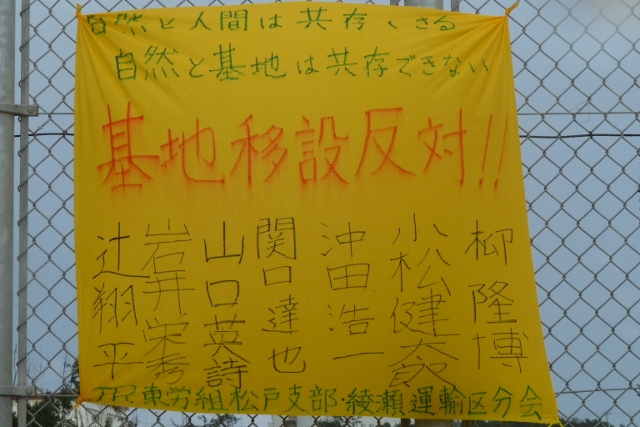 自然と人間は共存できる
自然と基地は共存できない
基地移設反対!!
柳隆博
小松健太郎
沖田浩一
関口達也
山口英詩
岩井栄秀
辻翔平
JR東労組松戸支部・綾瀬運輸区分会